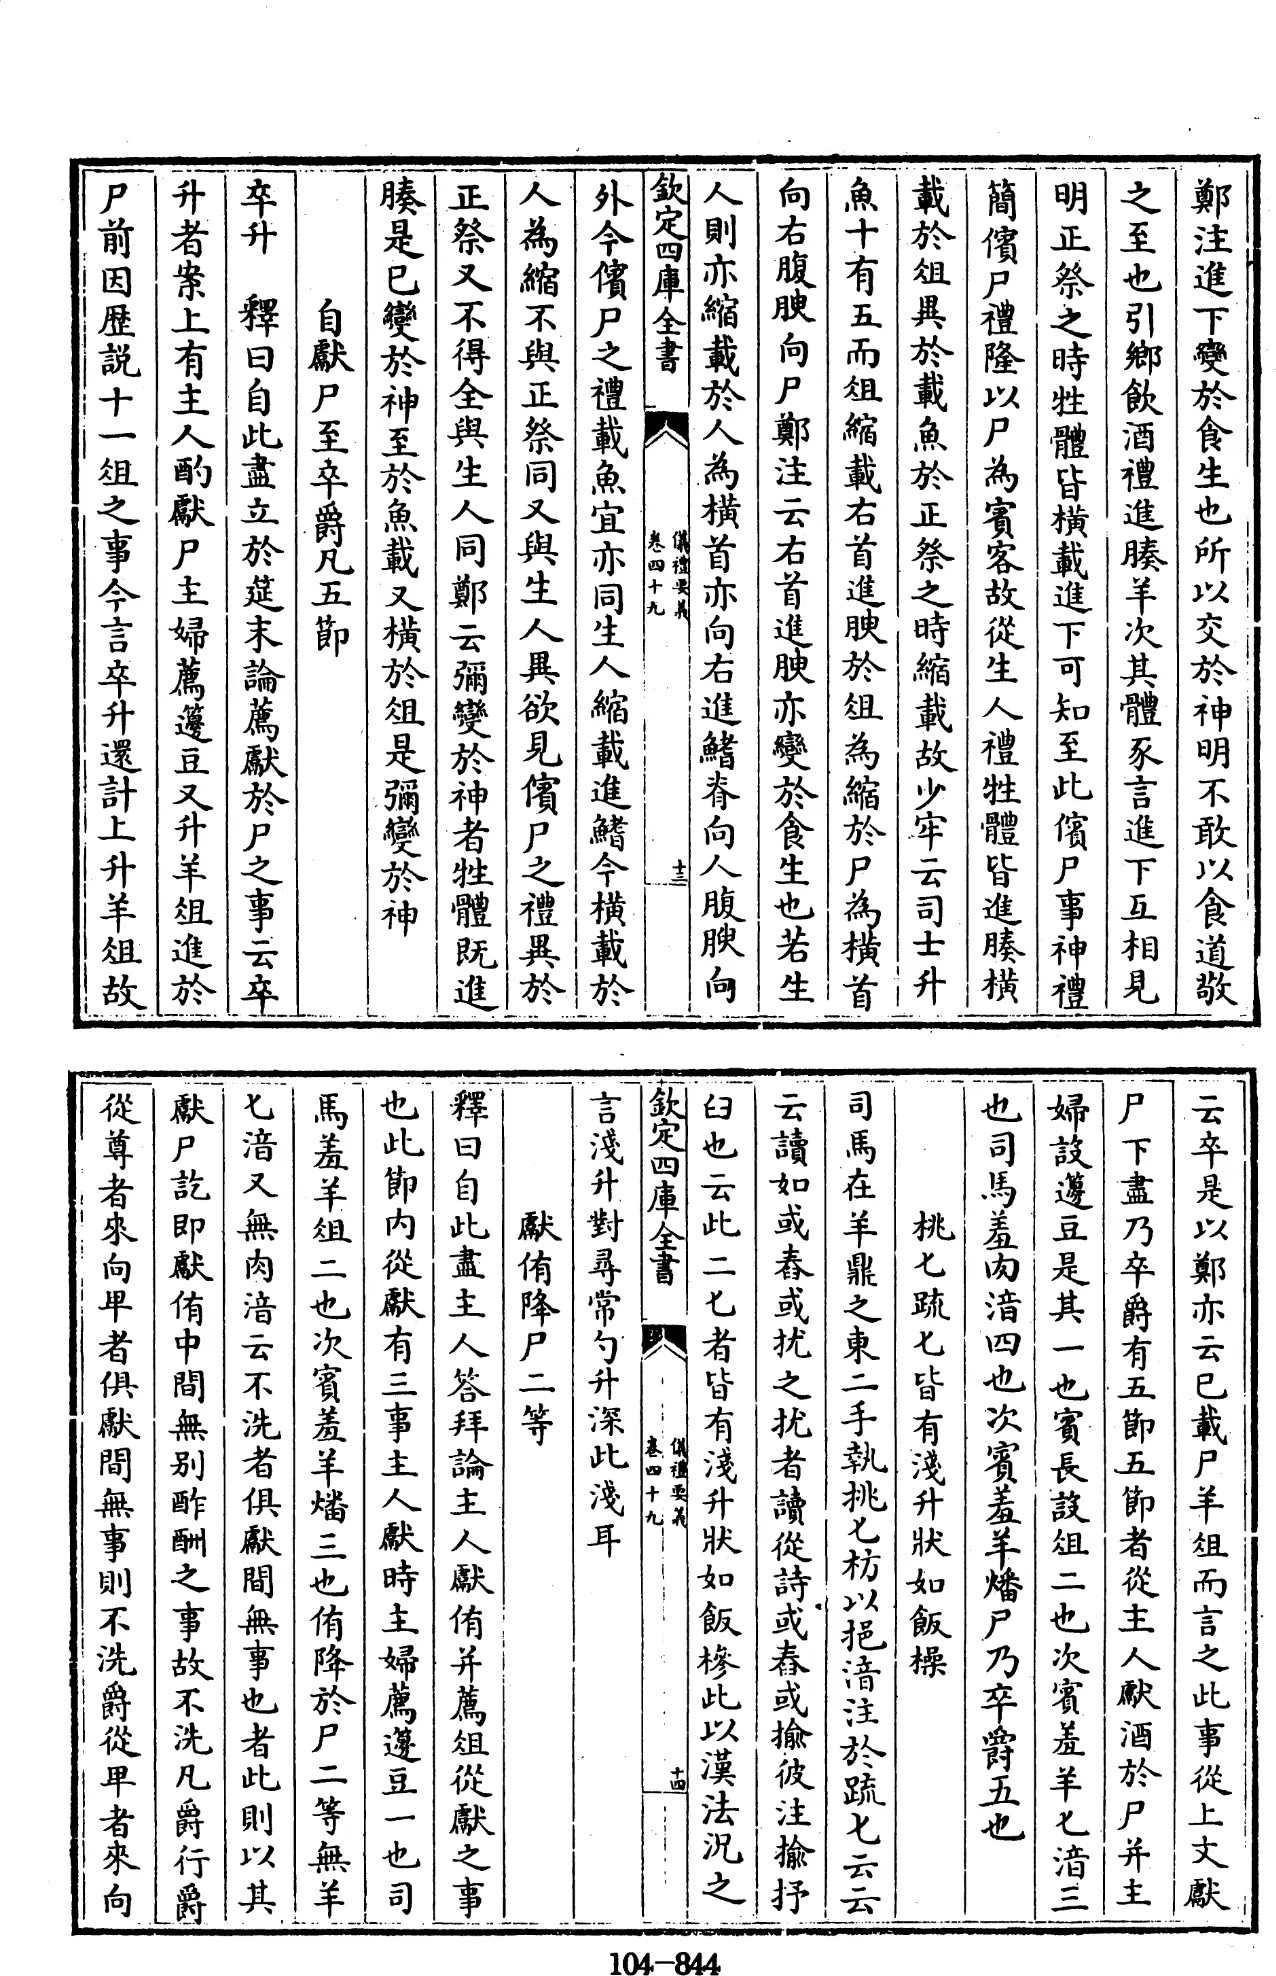 鄭注進下變於食生也所以交於神明不敢以食道敬
之至也引鄉飲酒禮進腠羊次其體豕言進下互相見
明正祭之時牲體皆橫載進下可知至此儐尸事神禮
簡儐尸禮隆以尸為賓客故從生人禮牲體皆進腠橫
載於俎異於載魚於正祭之時縮載故少牢云司士升
魚十有五而俎縮載右首進腴於俎為縮於尸為橫首
向右腹腴向尸鄭注云右首進腴亦變於食生也若生
人則亦縮載於人為橫首亦向右進鰭脊向人腹腴向
欽定四庫全書
儀禮要義
卷四十九
十三
外今儐尸之禮載魚宜亦同生人縮載進鰭今橫載於
人為縮不與正祭同又與生人異欲見儐尸之禮異於
正祭又不得全與生人同鄭云彌變於神者牲體既進
腠是已變於神至於魚載又橫於俎是彌變於神
自獻尸至卒爵凡五節
卒升 釋曰自此盡立於筵末論薦獻於尸之事云卒
升者案上有主人酌獻尸主婦薦籩豆又升羊俎進於
尸前因歷説十一俎之事今言卒升還計上升羊俎故
云卒是以鄭亦云已載尸羊俎而言之此事從上文獻
尸下盡乃卒爵有五節五節者從主人獻酒於尸并主
婦設籩豆是其一也賓長設俎二也次賓羞羊匕湆三
也司馬羞肉湆四也次賓羞羊燔尸乃卒爵五也
桃匕疏匕皆有淺升狀如飯橾
司馬在羊鼎之東二手執挑匕枋以挹湆注於疏匕云云
云讀如或舂或抌之抌者讀從詩或舂或揄彼注揄抒
臼也云此二匕者皆有淺升狀如飯椮此以漢法況之
欽定四庫全書
儀禮要義
卷四十九
十四
言淺升對尋常勺升深此淺耳
獻侑降尸二等
釋曰自此盡主人答拜論主人獻侑并薦俎從獻之事
也此節内從獻有三事主人獻時主婦薦籩豆一也司
馬羞羊俎二也次賓羞羊燔三也侑降於尸二等無羊
匕湆又無肉湆云不洗者俱獻間無事也者此則以其
獻尸訖即獻侑中間無别酢酬之事故不洗凡爵行爵
從尊者來向卑者俱獻間無事則不洗爵從卑者來向
104-844